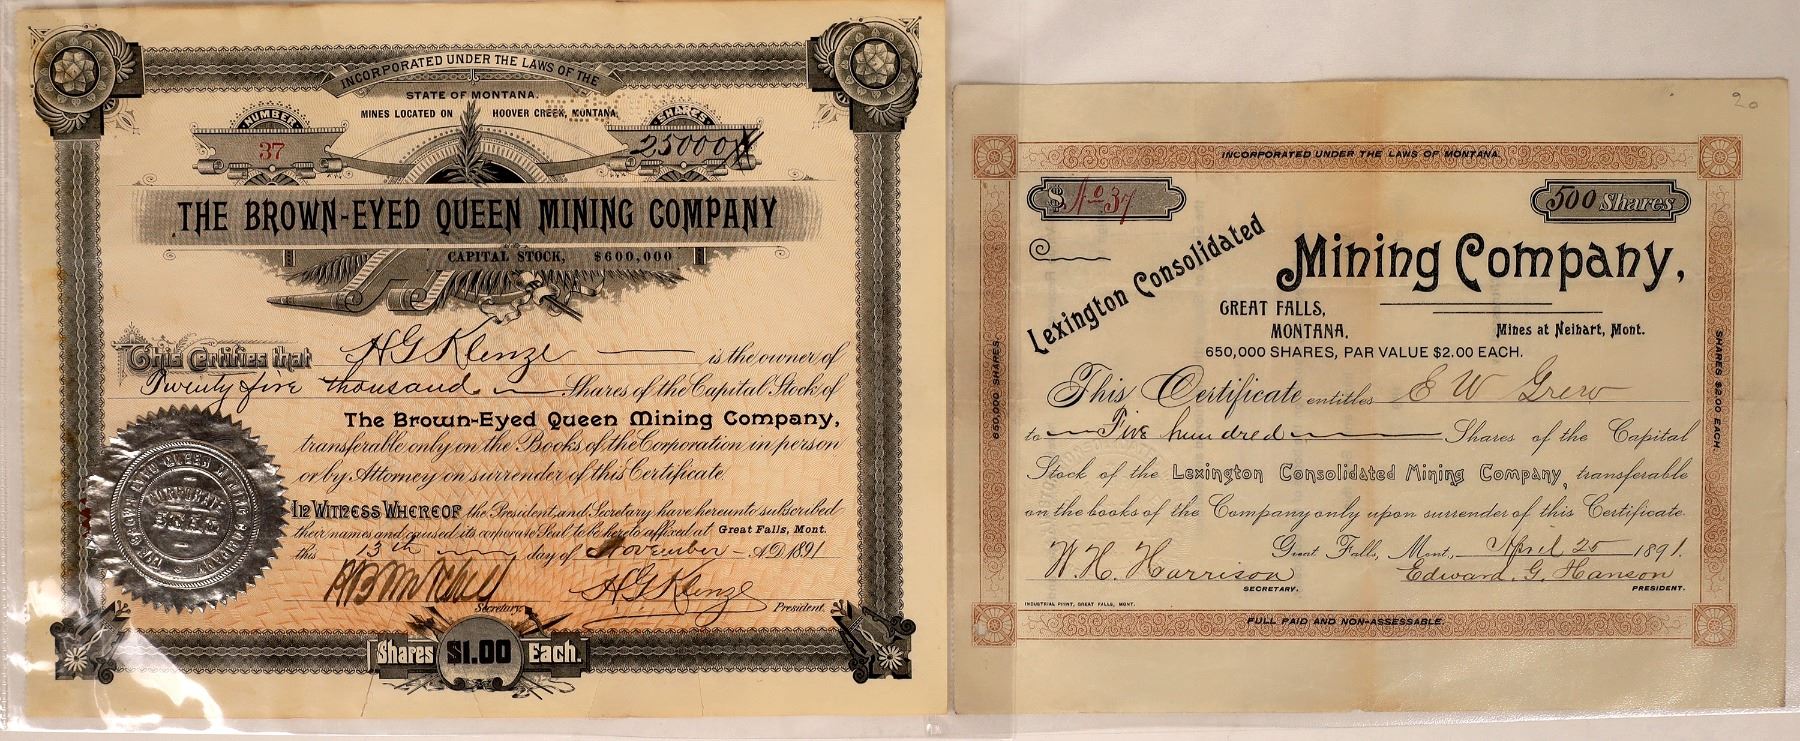 INCORPORATED UNDER THE LAWS OF THE
STATE OF MONTANA.
MINES LOCATED ON HOOVER CREEK, MONTANA.
NUMBER
37
SHARES
25000
THE BROWN-EYED QUEEN MINING COMPANY
CAPITAL STOCK, $600,000
This Certifies that H G Klenze is the owner of
Twenty five thousand Shares of the Capital Stock of
The Brown-Eyed Queen Mining Company,
transferable only on the Books of the Corporation in person
or by Attorney on surrender of this Certificate.
In Witness Whereof the President and Secretary have hereunto subscribed
their names and caused its corporate Seal to be hereto affixed at Great Falls, Mont.
this 13th day of November A.D. 1891
H G Klenze
Secretary. President.
CORPORATE
SEAL
Shares $1.00 Each.
20
INCORPORATED UNDER THE LAWS OF MONTANA.
$ No 37
500 Shares
Lexington Consolidated Mining Company,
GREAT FALLS,
MONTANA.
Mines at Neihart, Mont.
650,000 SHARES, PAR VALUE $2.00 EACH.
This Certificate entitles E W Grew
to Five hundred Shares of the Capital
Stock of the Lexington Consolidated Mining Company, transferable
on the books of the Company only upon surrender of this Certificate.
Great Falls, Mont., April 25 1891.
W. H. Harrison Edward. G. Hanson
SECRETARY. PRESIDENT.
INDUSTRIAL PRINT, GREAT FALLS, MONT.
FULL PAID AND NON-ASSESSABLE.
650,000 SHARES
SHARES $2.00 EACH.